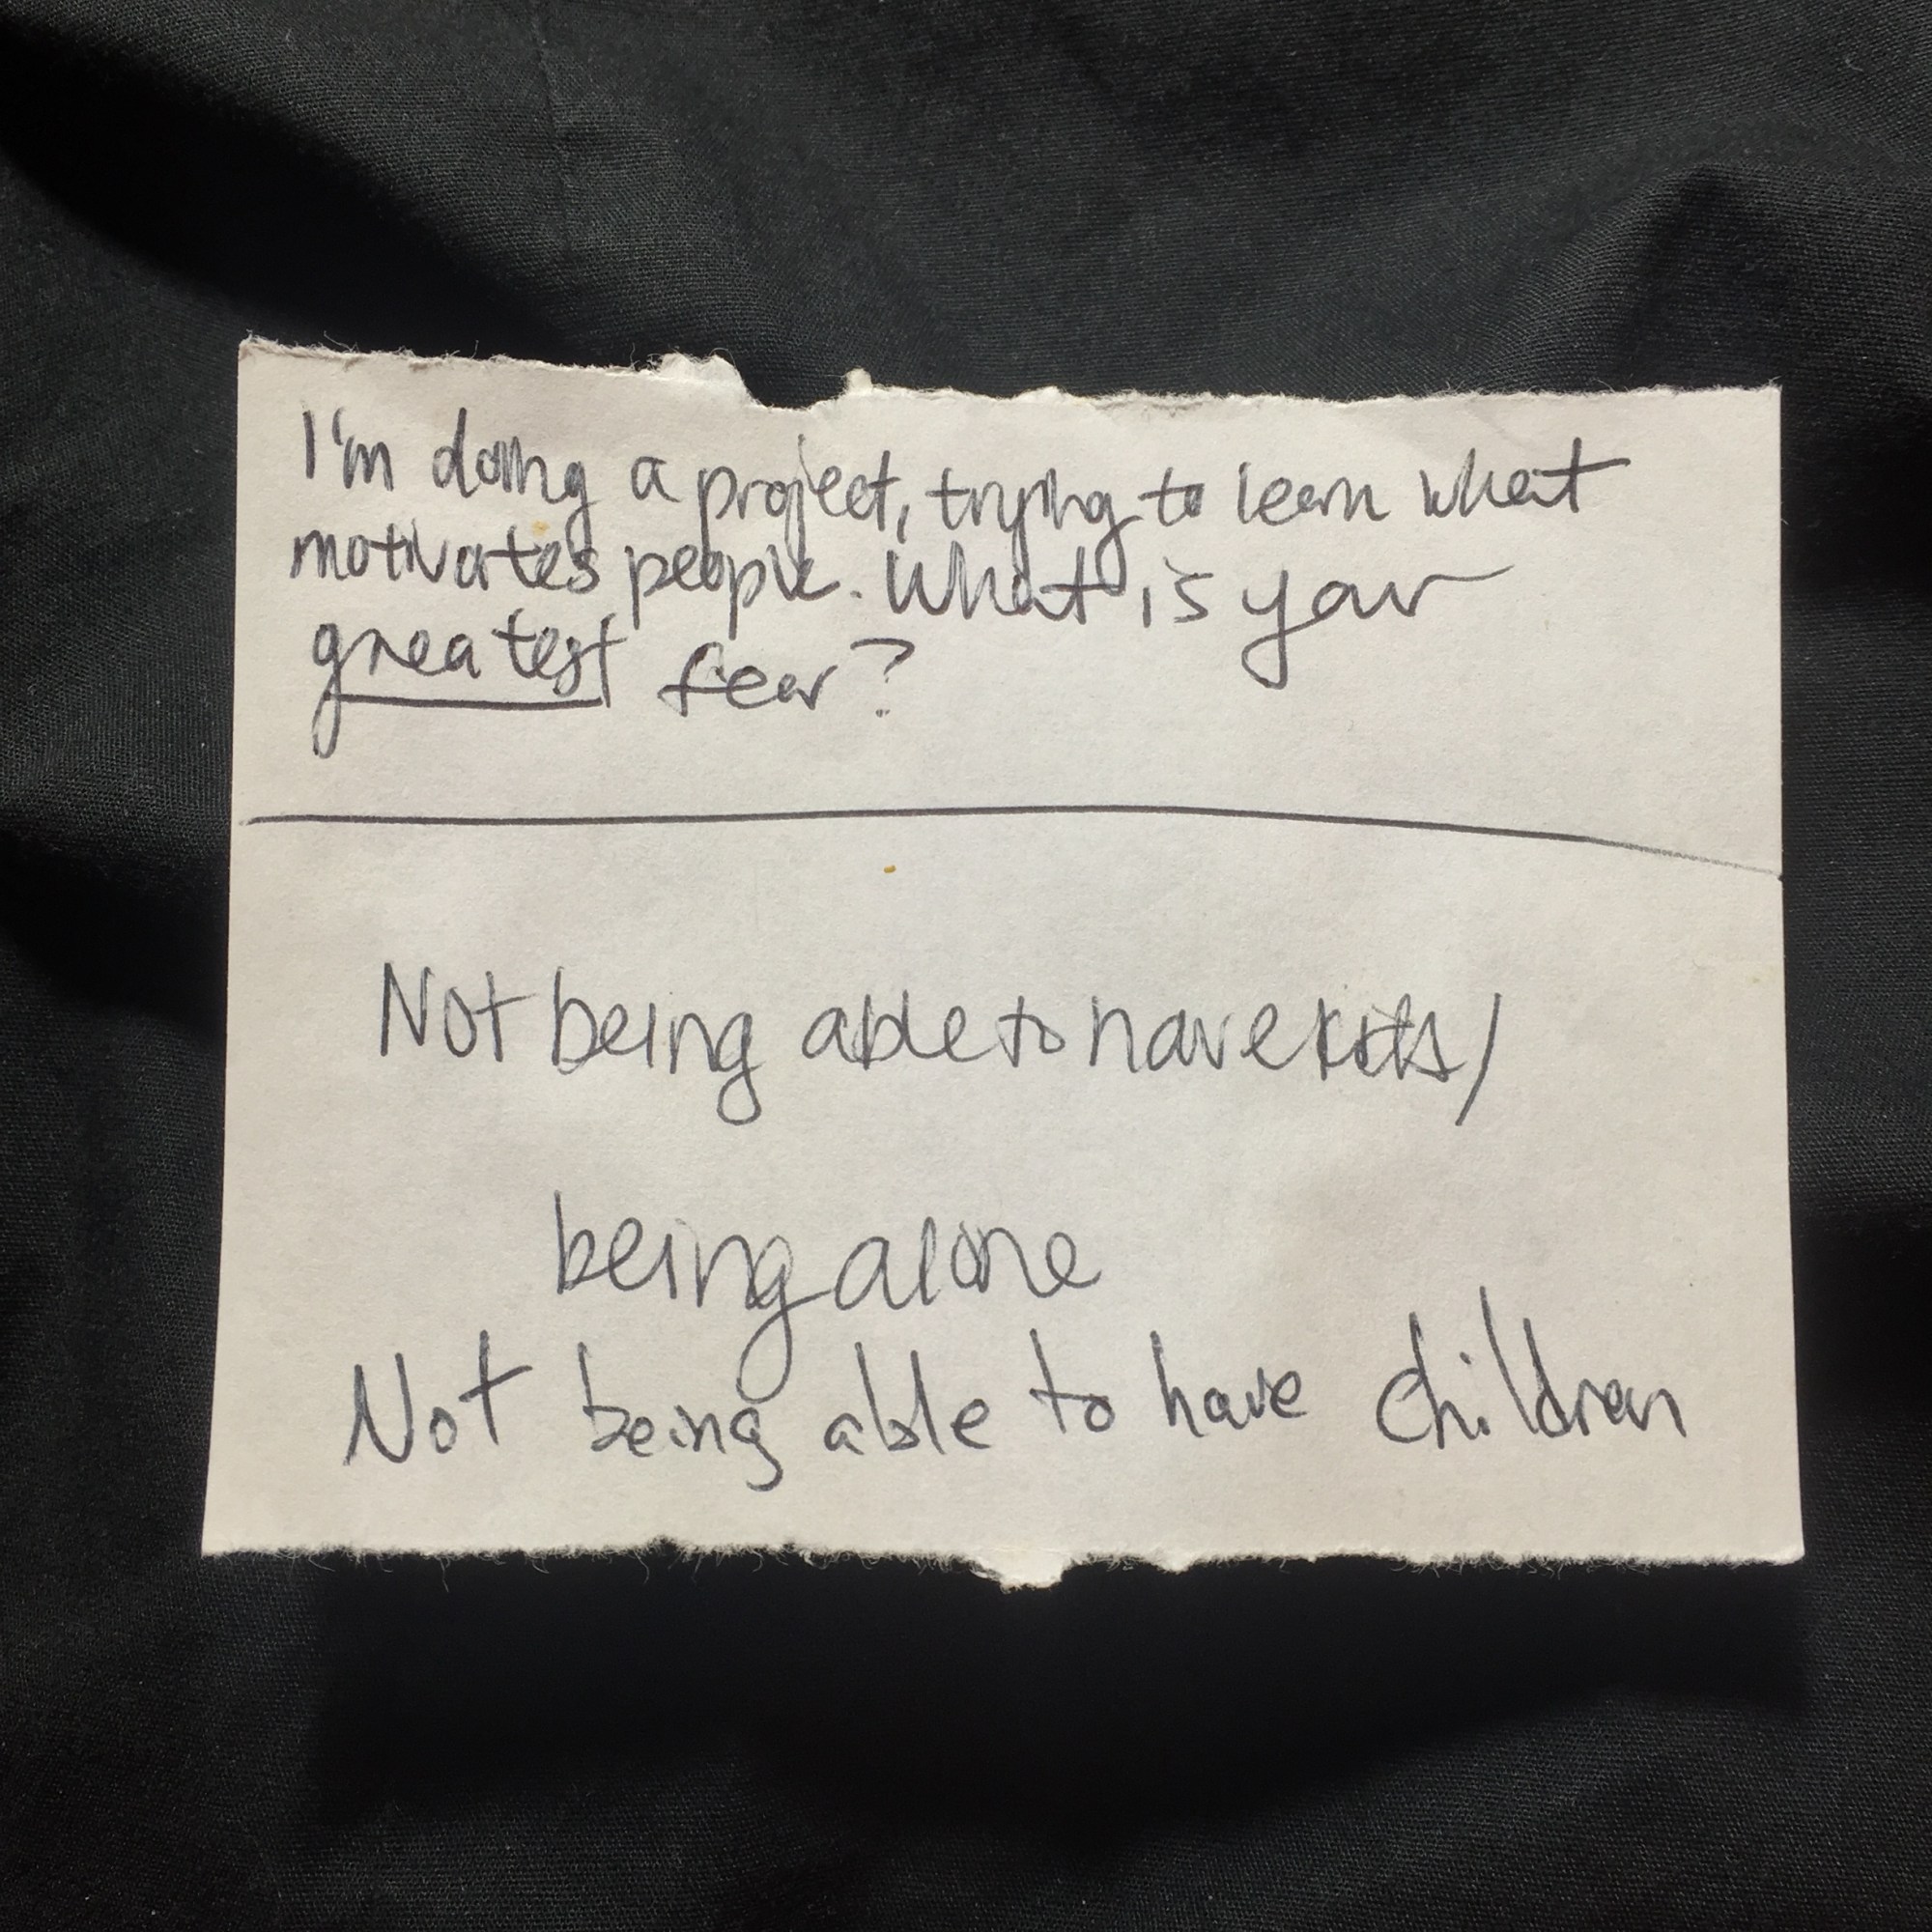 I'm doing a project, trying to learn what
motivates people. What is your
greatest fear?
Not being able to have kids/
being alone
Not being able to have children